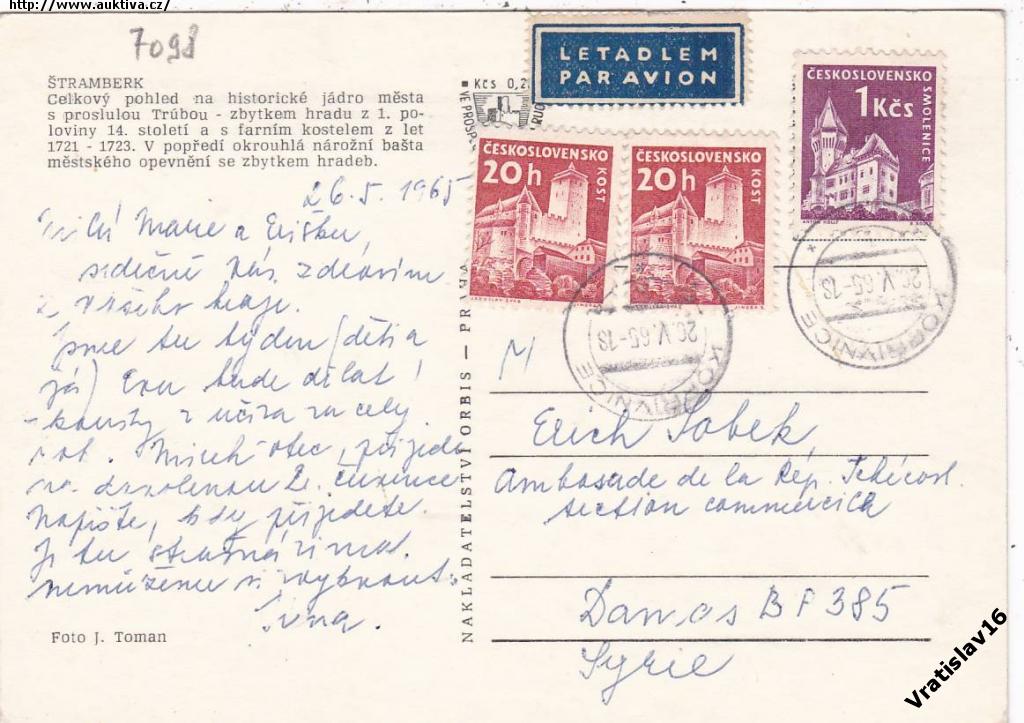 http://www.auktiva.cz/
7098
ŠTRAMBERK
Celkový pohled na historické jádro města
s proslulou Trúbou - zbytkem hradu z 1. po-
loviny 14. století a s farním kostelem z let
1721 - 1723. V popředí okrouhlá nárožní bašta
městského opevnění se zbytkem hradeb.
26.5. 1965
Marie a
srdečně Vás zdravím
z Vašeho kraje.
Jsme tu týden (děti a
já) Eva bude dělat
zkoušky z učiva za celý
rok. otec, přijede
na dovolenou 2. července
Napište, kdy přijedete.
Je tu strašná zima.
nemůžeme si vybrat.
Foto J. Toman
NAKLADATELSTVÍ ORBIS — PRAHA
Kčs 0,2
VE PROSP
LETADLEM
PAR AVION
ČESKOSLOVENSKO
20h
KOST
ČESKOSLOVENSKO
20h
KOST
ČESKOSLOVENSKO
1Kčs
SMOLENICE
26.V.65-18
KOPŘIVNICE
26.V.65-18
KOPŘIVNICE
Erich Sobek
Ambasade de la Rép. Tchécosl.
section commercica
Damas BP 385
Syrie
Vratislav16